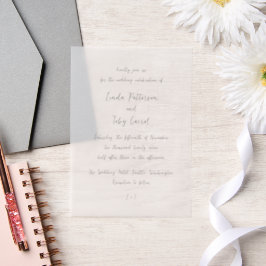 kindly join us
for the wedding celebration of
Linda Patterson
and
Toby Carrol
Saturday, the fifteenth of November
two thousand twenty nine
half after three in the afternoon
the Wedding Hotel Seattle, Washington
Reception to follow